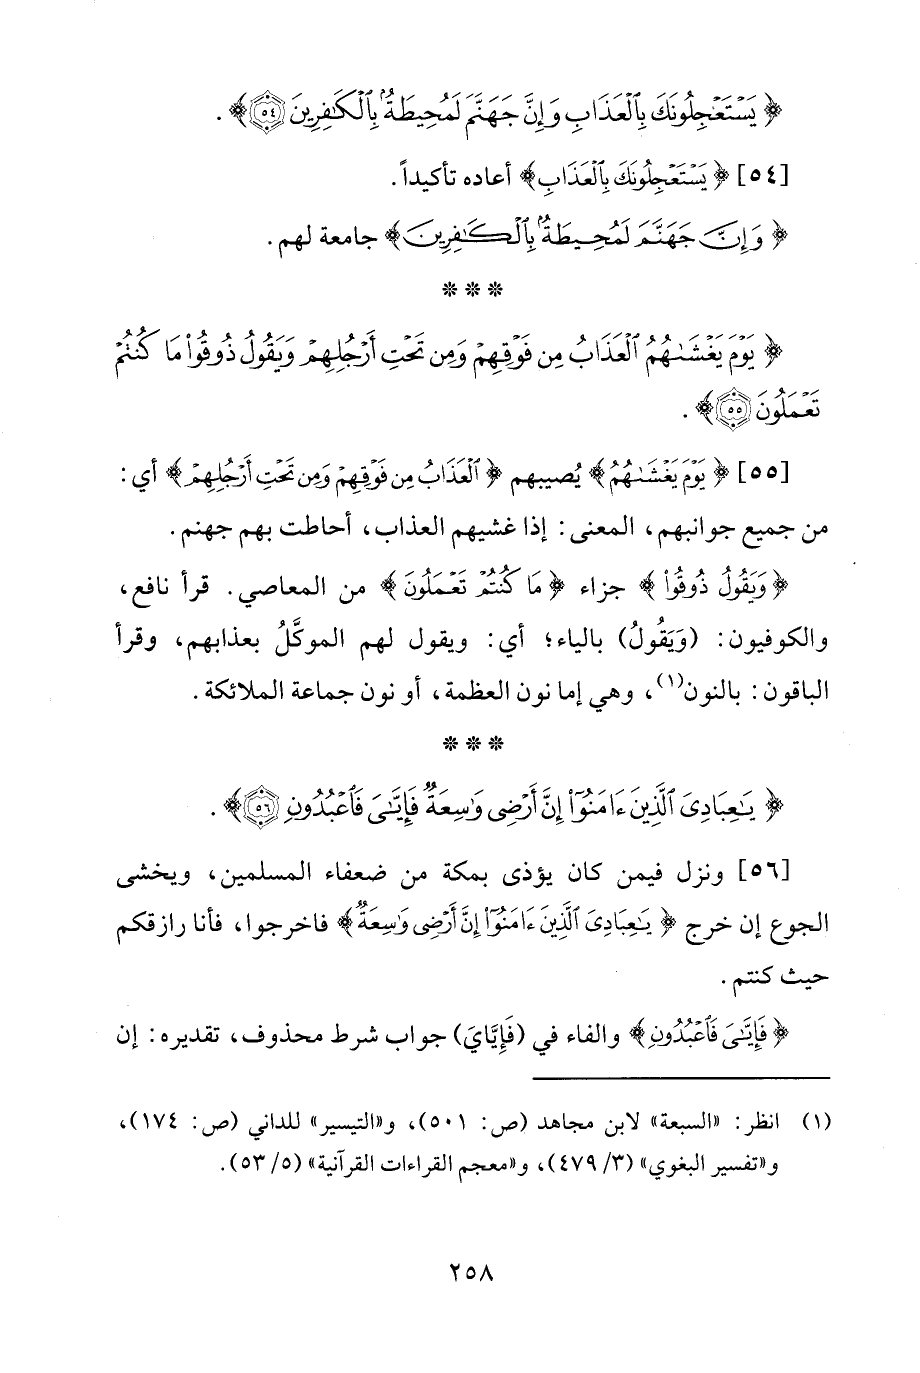 ﴿ يَسْتَعْجِلُونَكَ بِالْعَذَابِ وَإِنَّ جَهَنَّمَ لَمُحِيطَةٌ بِالْكَافِرِينَ ٥٤﴾ .
[٥٤] ﴿ يَسْتَعْجِلُونَكَ بِالْعَذَابِ﴾ أعاده تأكيداً .
﴿ وَإِنَّ جَهَنَّمَ لَمُحِيطَةٌ بِالْكَافِرِينَ﴾ جامعة لهم .
* * *
﴿ يَوْمَ يَغْشَاهُمُ الْعَذَابُ مِن فَوْقِهِمْ وَمِن تَحْتِ أَرْجُلِهِمْ وَيَقُولُ ذُوقُوا مَا كُنتُمْ
تَعْمَلُونَ ٥٥﴾ .
[٥٥] ﴿ يَوْمَ يَغْشَاهُمُ﴾ يُصيبهم ﴿ الْعَذَابُ مِن فَوْقِهِمْ وَمِن تَحْتِ أَرْجُلِهِمْ﴾ أي :
من جميع جوانبهم ، المعنى : إذا غشيهم العذاب ، أحاطت بهم جهنم .
﴿ وَيَقُولُ ذُوقُوا ﴾ جزاء ﴿ مَا كُنتُمْ تَعْمَلُونَ ﴾ من المعاصي . قرأ نافع ،
والكوفيون : (وَيَقُولُ) بالياء ؛ أي : ويقول لهم الموكَّلُ بعذابهم ، وقرأ
الباقون : بالنون(١) ، وهي إما نون العظمة ، أو نون جماعة الملائكة .
* * *
﴿ يَاعِبَادِيَ الَّذِينَ ءَامَنُوا إِنَّ أَرْضِي وَاسِعَةٌ فَإِيَّايَ فَاعْبُدُونِ ٥٦﴾ .
[٥٦] ونزل فيمن كان يؤذى بمكة من ضعفاء المسلمين ، ويخشى
الجوع إن خرج ﴿ يَاعِبَادِيَ الَّذِينَ ءَامَنُوا إِنَّ أَرْضِي وَاسِعَةٌ﴾ فاخرجوا ، فأنا رازقكم
حيث كنتم .
﴿ فَإِيَّايَ فَاعْبُدُونِ﴾ والفاء في (فَإِيَّايَ) جواب شرط محذوف ، تقديره : إن
(١) انظر : «السبعة» لابن مجاهد (ص : ٥٠١) ، و«التيسير» للداني (ص : ١٧٤) ،
و«تفسير البغوي» (٣/ ٤٧٩) ، و«معجم القراءات القرآنية» (٥/ ٥٣) .
٢٥٨